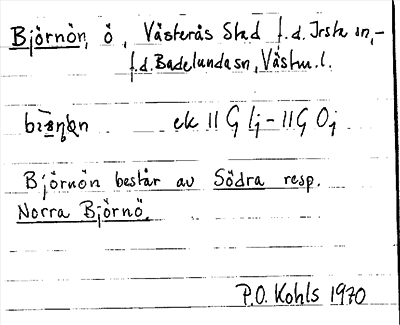 Björnön, ö, Västerås Stad f.d. Irsta sn,-
f.d. Badelundasn, Västm.l.
ek 11 G Ij - 11 G Oj
Björnön består av Södra resp.
Norra Björnö.
P.O. Kohls 1970